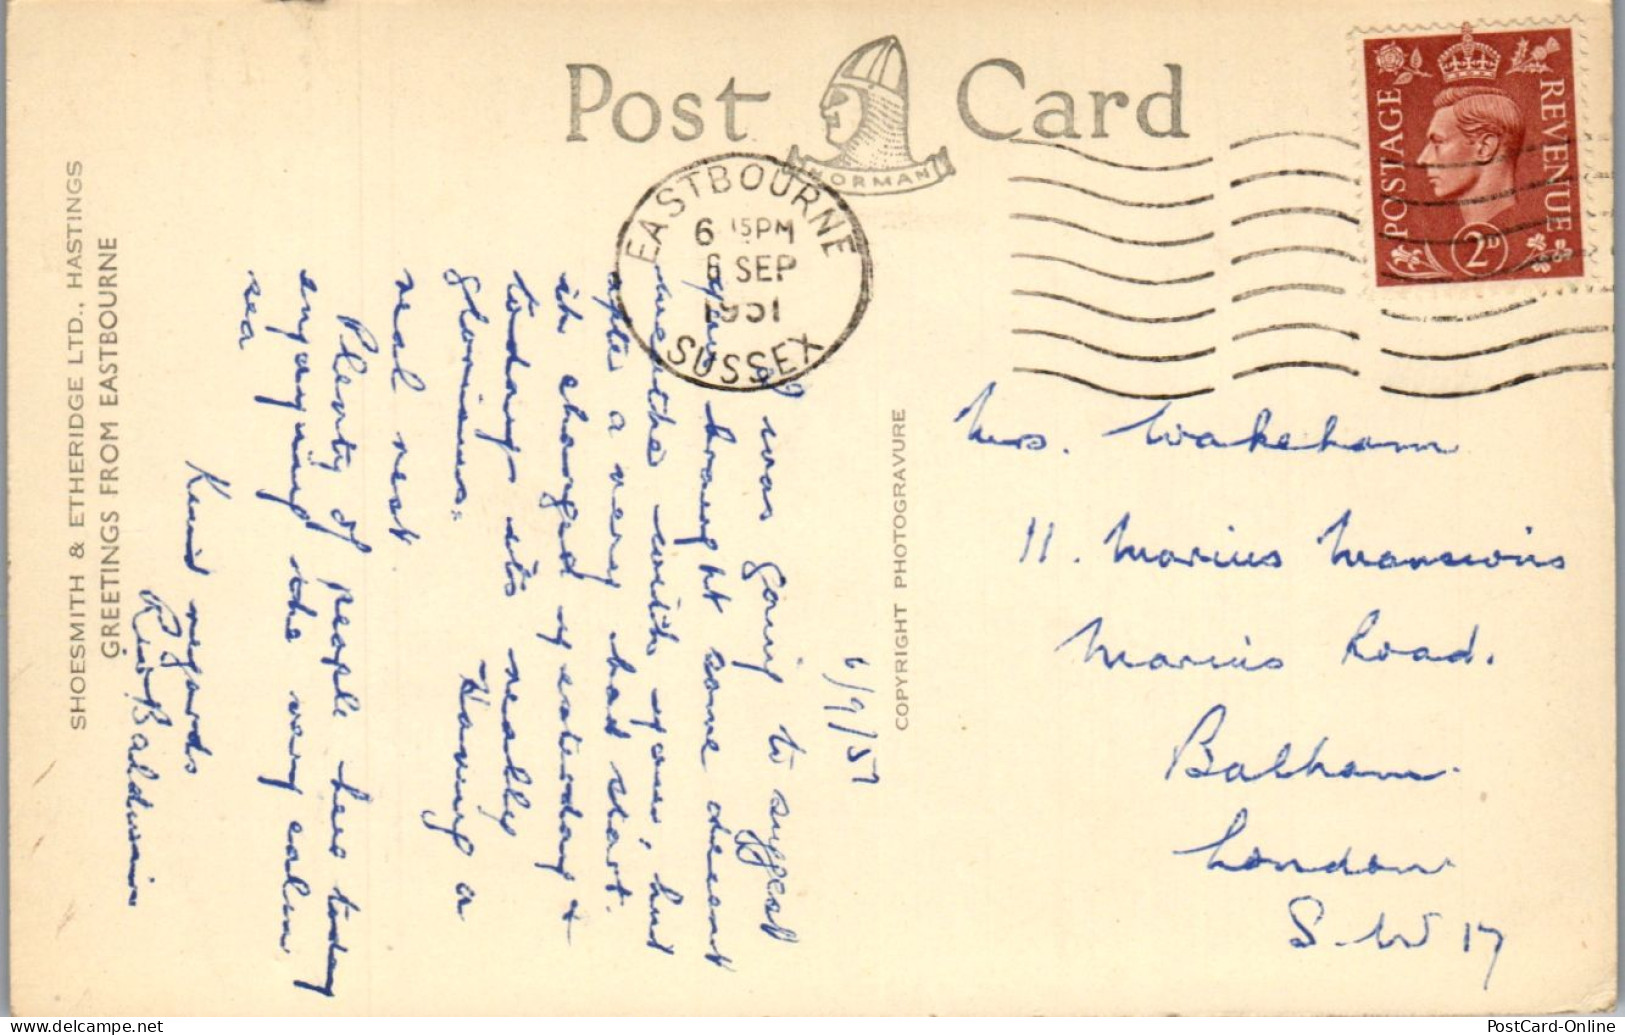 Post Card
NORMAN
POSTAGE
REVENUE
2D
EASTBOURNE
6 15 PM
6 SEP
1951
SUSSEX
SHOESMITH & ETHERIDGE LTD., HASTINGS
GREETINGS FROM EASTBOURNE
COPYRIGHT PHOTOGRAVURE
6/9/51
I was going to suggest
you brought some decent
weather with you, but
after a very bad start
it changed yesterday &
today its really
glorious. Having a
real rest
Plenty of people here today
enjoying the very calm
sea
Kind regards
Baldwin
Mrs. Wakeham
11. Marius Mansions
Marius Road.
Balham.
London
S.W 17
PostCard-Online
www.delcampe.net